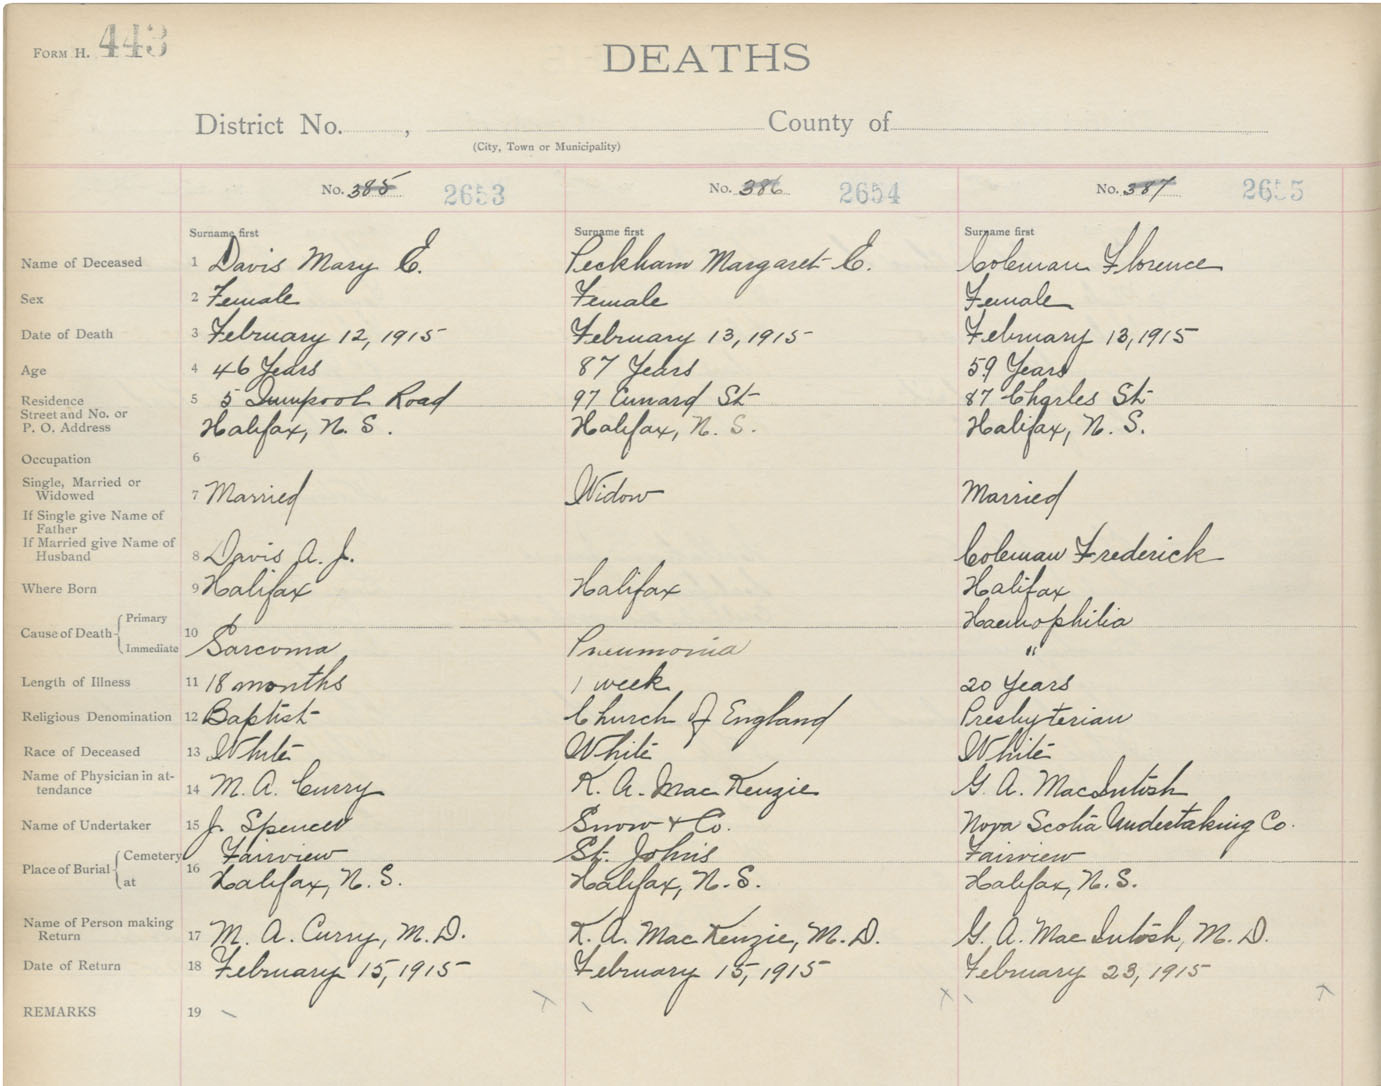 FORM H. 443
DEATHS
District No. , County of
(City, Town or Municipality)
No. 385 2653 No. 386 2654 No. 387 2655
Surname first Surname first Surname first
Name of Deceased 1 Davis Mary E. Peckham Margaret E. Coleman Florence
Sex 2 Female Female Female
Date of Death 3 February 12, 1915 February 13, 1915 February 13, 1915
Age 4 46 Years 87 Years 59 Years
Residence 5 5 Road 97 Cunard St 87 Charles St
Street and No. or
P. O. Address Halifax, N. S. Halifax, N. S. Halifax, N. S.
Occupation 6
Single, Married or
Widowed 7 Married Widow Married
If Single give Name of
Father
If Married give Name of
Husband 8 Davis A. J. Coleman Frederick
Where Born 9 Halifax Halifax Halifax
Cause of Death Primary 10 Haemophilia
Immediate Sarcoma Pneumonia "
Length of Illness 11 18 months 1 week 20 Years
Religious Denomination 12 Baptist Church of England Presbyterian
Race of Deceased 13 White White White
Name of Physician in at-
tendance 14 M. A. Curry K. A. MacKenzie G. A. MacIntosh
Name of Undertaker 15 J. Spencer Snow & Co. Nova Scotia Undertaking Co.
Place of Burial Cemetery 16 Fairview St. John's Fairview
at Halifax, N. S. Halifax, N. S. Halifax, N. S.
Name of Person making
Return 17 M. A. Curry, M. D. K. A. MacKenzie, M. D. G. A. MacIntosh, M. D.
Date of Return 18 February 15, 1915 February 15, 1915 February 23, 1915
REMARKS 19